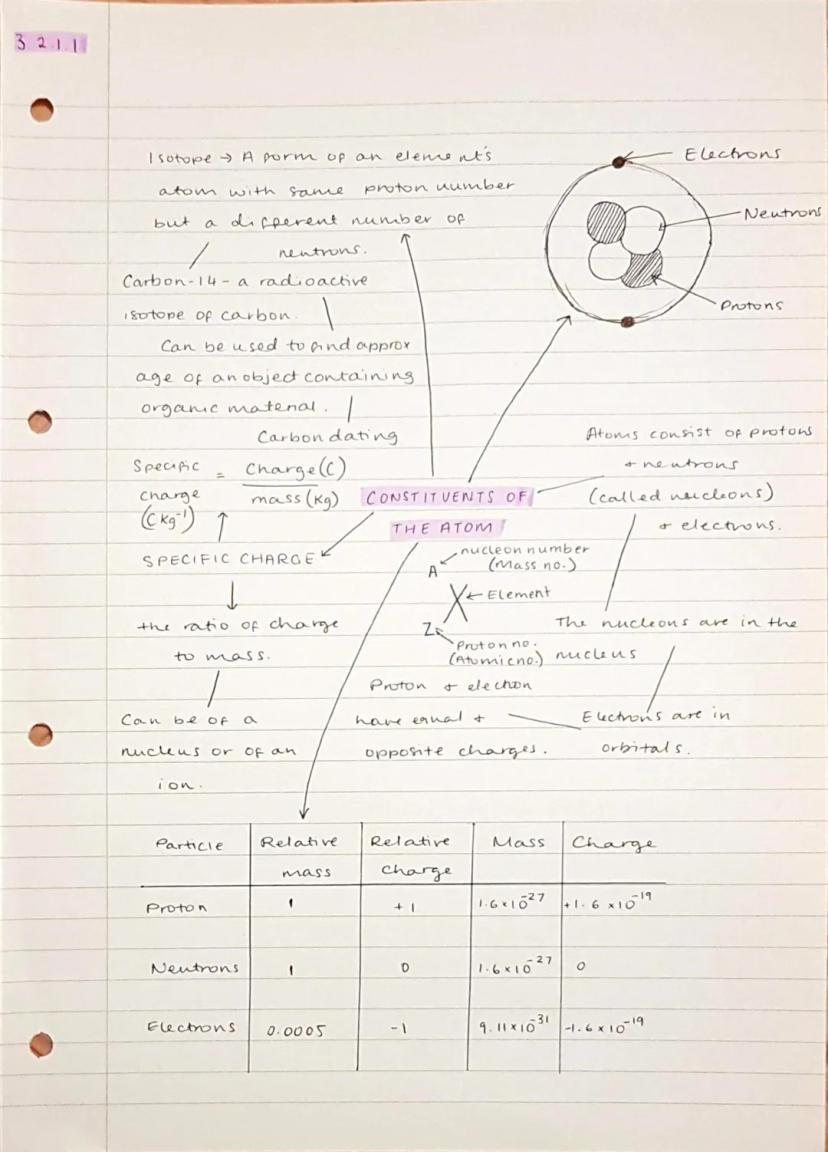 3.2.1.1
Isotope → A form of an element's
atom with same proton number
but a different number of
neutrons.
Electrons
Neutrons
Protons
Carbon-14 - a radioactive
isotope of carbon.
Can be used to find approx
age of an object containing
organic material.
Carbon dating
Atoms consist of protons
+ neutrons
(called nucleons)
+ electrons.
Specific charge (Ckg⁻¹) = Charge(C) / mass(kg)
CONSTITUENTS OF
THE ATOM
SPECIFIC CHARGE
the ratio of charge
to mass.
Can be of a
nucleus or of an
ion.
A nucleon number
(Mass no.)
X ← Element
Z Proton no.
(Atomic no.)
The nucleons are in the
nucleus
Electrons are in
orbitals.
Proton + electron
have equal +
opposite charges.
Particle Relative mass Relative charge Mass Charge
Proton 1 +1 1.6×10⁻²⁷ +1.6×10⁻¹⁹
Neutrons 1 0 1.6×10⁻²⁷ 0
Electrons 0.0005 -1 9.11×10⁻³¹ -1.6×10⁻¹⁹